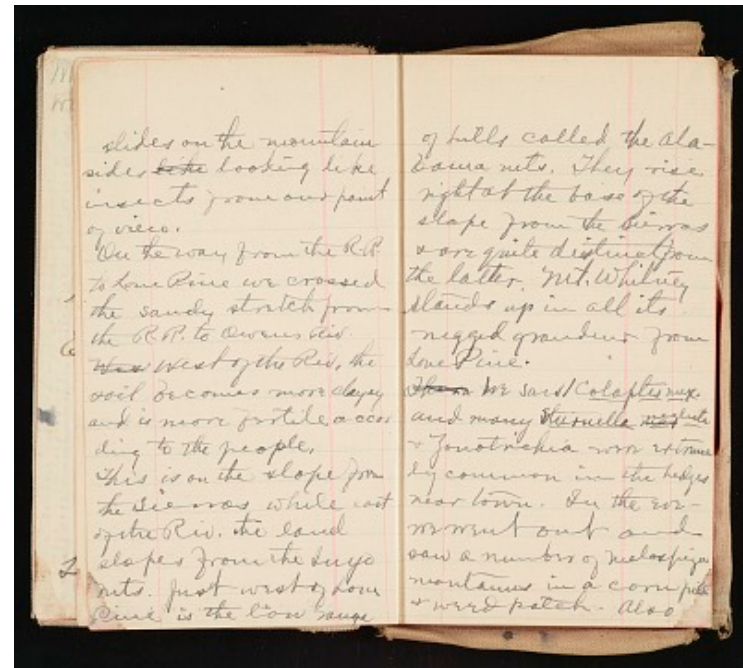 slides on the mountain
sides like looking like
insects from our point
of view.
On the way from the R.R.
to Lone Pine we crossed
the sandy stretch from
the R.R. to Owens Riv.
West of the Riv. the
soil becomes more clayey
and is more fertile accor
ding to the people.
This is on the slope from
the Sierras while east
of the Riv. the land
slopes from the Inyo
mts. Just west of Lone
Pine is the low range
of hills called the Ala-
bama mts. They rise
right at the base of the
slope from the Sierras
& are quite distinct from
the latter. Mt. Whitney
stands up in all its
rugged grandeur from
Lone Pine.
We saw 1 Colaptes mex.
and many Sturnella neglecta
& Zonotrichia were extreme
ly common in the hedges
near town. In the eve-
we went out and
saw a number of melospiza
montanus in a corn field
& weed patch. Also